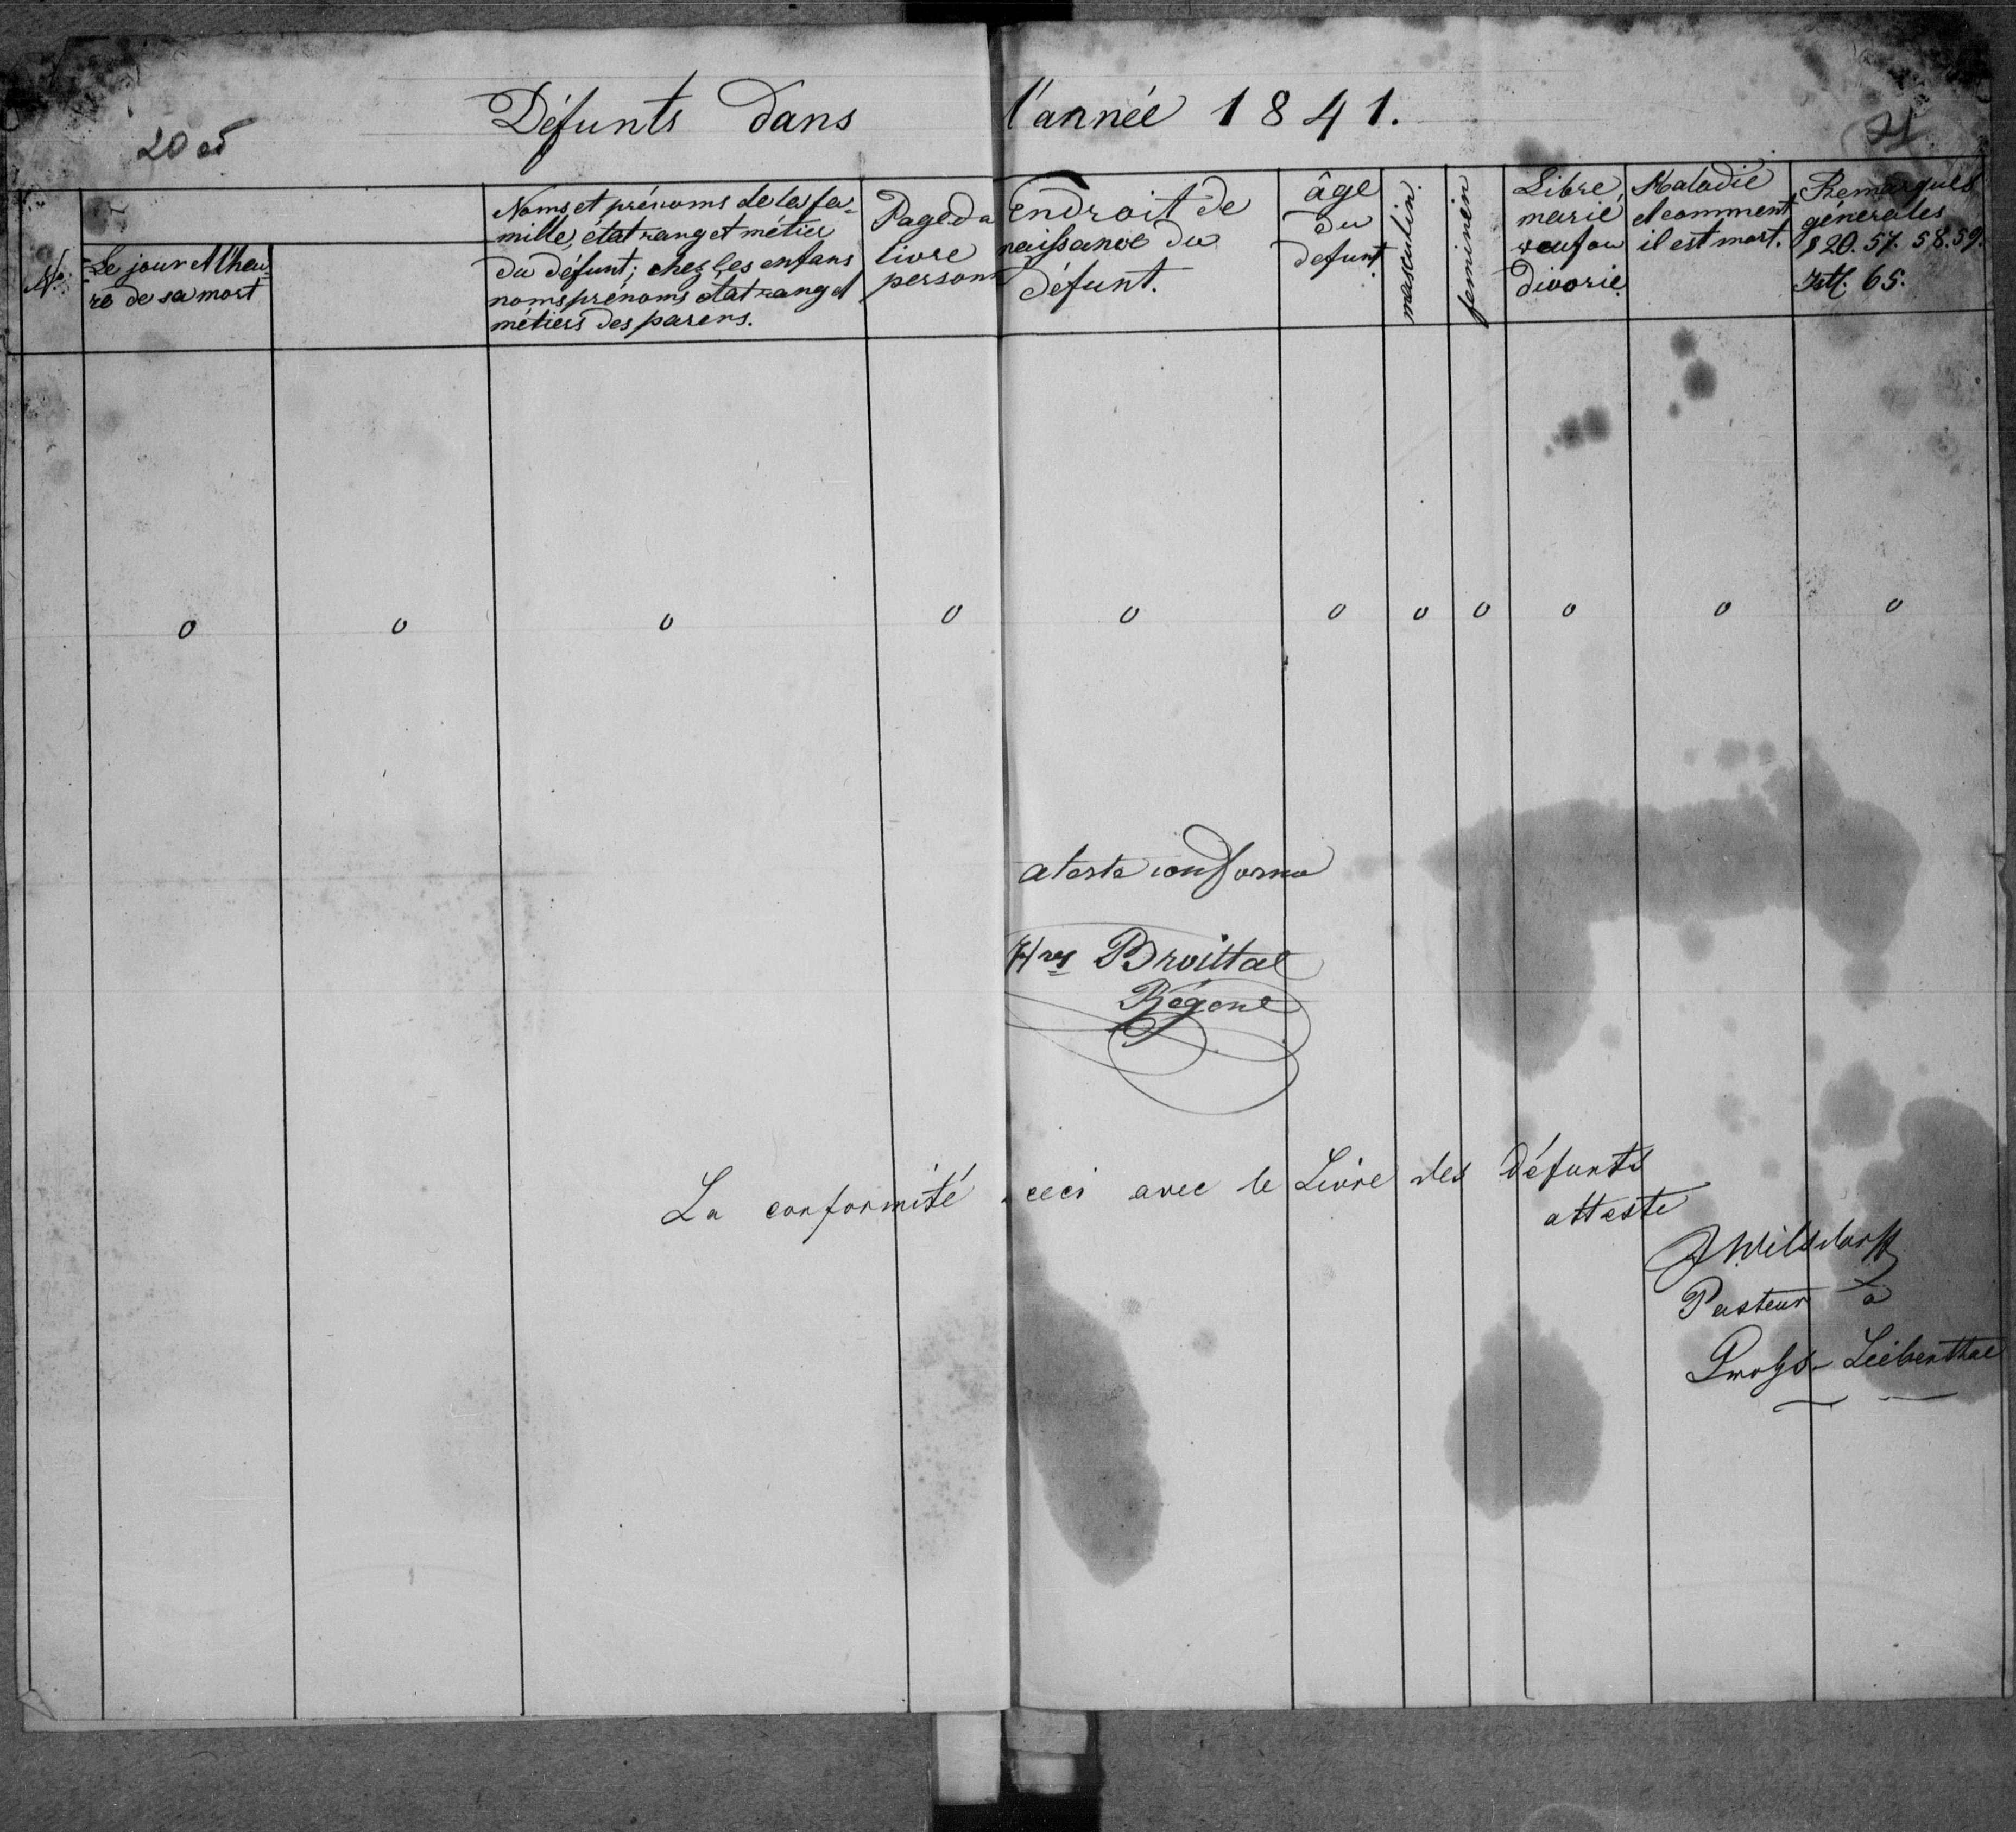 Défunts dans l'année 1841.
21
No.
Le jour et l'heu-
re de sa mort
Noms et prénoms de la fa-
mille, état rang et métier
du défunt; chez les enfans
noms prénoms état rang et
métiers des parens.
Page du
livre
person
Endroit de
naissance du
défunt.
âge
du
defunt
masculin.
feminin
Libre
marié
veuf ou
divorié.
Maladie
et comment
il est mort.
Remarques
génerales
§ 20. 57. 58. 59.
65.
0 0 0 0 0 0 0 0 0 0 0
ateste conforme
Broittal
Régent
La conformité ceci avec le Livre des défunts
atteste
Wilsdorff
Pasteur à
Liebenthal